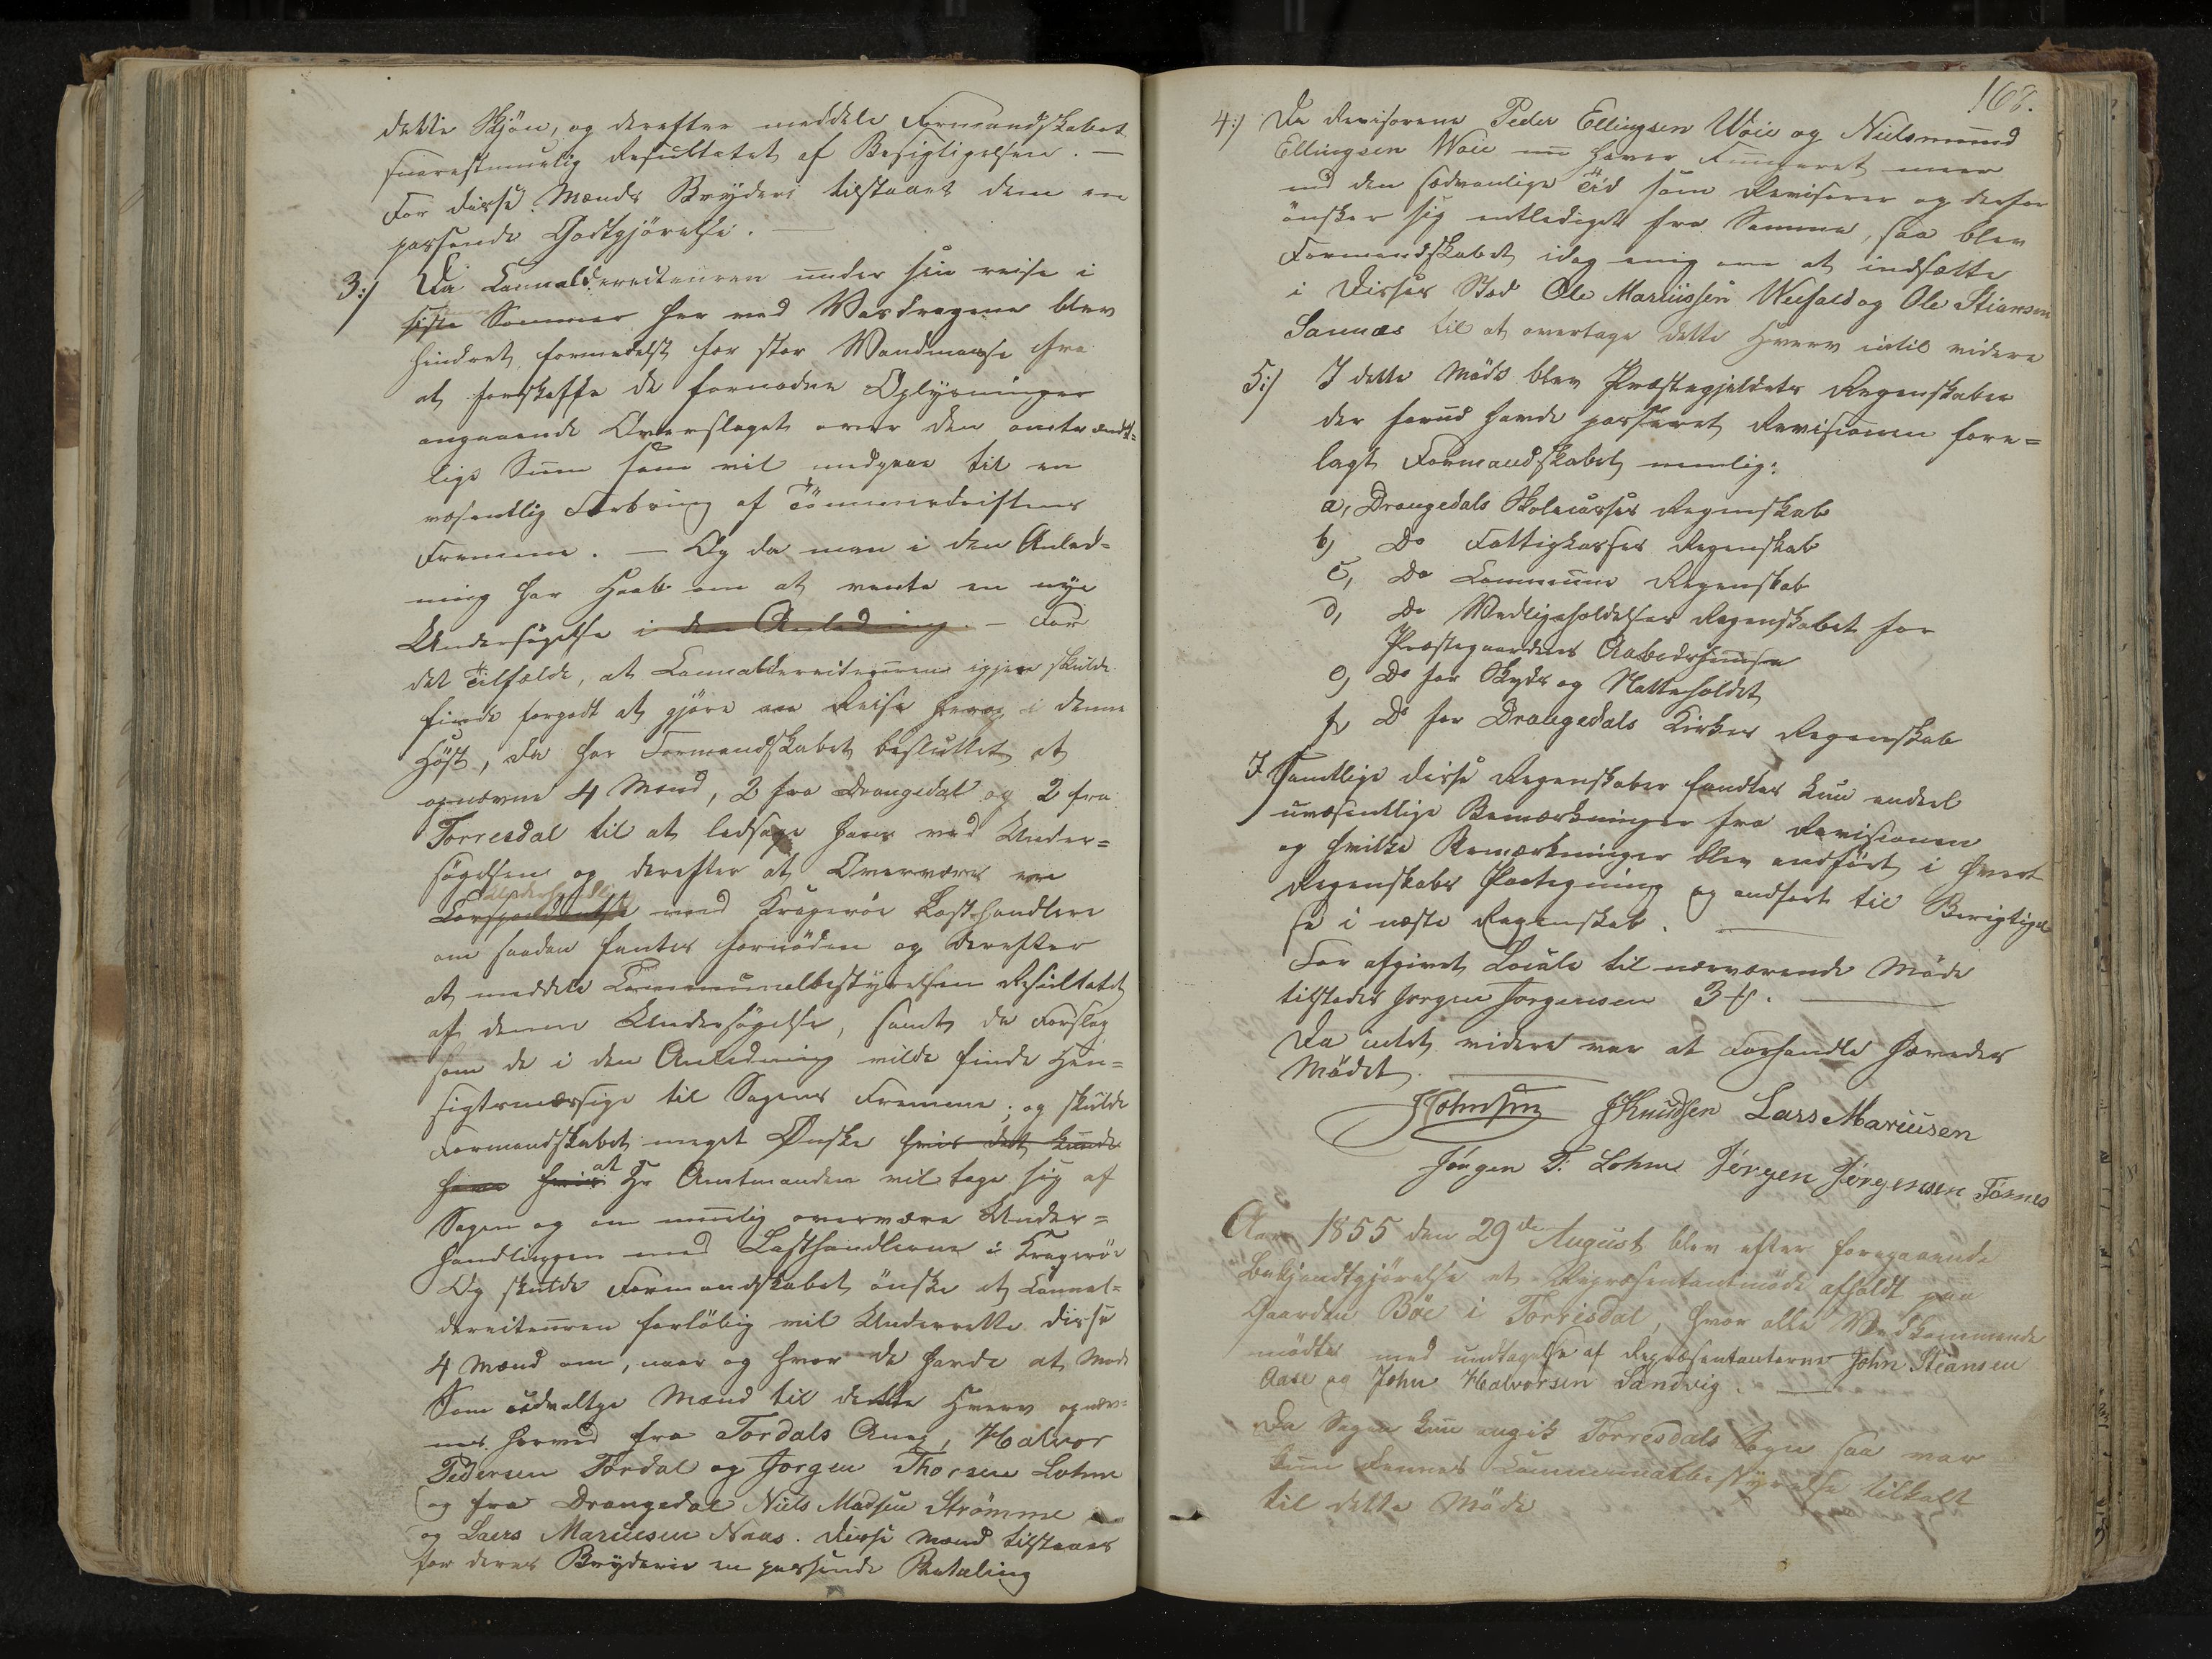 dette Skjøn, og derefter meddele Formandskabet
snarestmuelig Resultatet af Besigtigelsen. —
For disse Mænds Bryderi tilstaaes dem en
passende Godtgjørelse. —
3:/ Da Canaldirecteuren under sin reise i
siste Sommer her ved Vasdragene blev
hindret formedelst for stor Vandmasse fra
at forskaffe de fornødne Oplysninger
angaaende Overslaget over den omtrændt-
lige Sum som vil medgaae til en
væsentlig Forbring af Tømmerdriftens
Fremme. — Og da man i den Anled-
ning har Haab om at vente en nye
Undersøgelse i den Anledning. — For
det Tilfælde, at Canaldirecteuren igjen skulde
finde forgodt at gjøre en Reise herop i denne
Høst, da har Formandskabet besluttet at
opnævne 4 Mænd, 2 fra Drangedal og 2 fra
Torresdal til at ledsage ham ved Under=
søgelsen og derefter at Overvære en
Underhandling
Corspondentse med Kragerøe Lasthandlere
om saadan fantes fornøden og derefter
at meddele Communalbestyrelsen Resultatet
af denne Undersøgelse, samt de Forslag
som de i den Anledning vilde finde Hen=
sigtsmæssige til Sagens Fremme; og skulde
Formandskabet meget Ønske hvis det kunde
have hvis at Hr Amtmanden vil tage sig af
Sagen og om muelig overvære Under=
handlingen med Lasthandlerne i Kragerøe
Og skulde Formandskabet ønske at Canal-
direiteuren forløbig vil Underrette disse
4 Mænd om, naar og hvor de havde at Møde
Som udvalgte Mænd til dette Hverv opnæv-
nes herved fra Tørdals Aneg, Halvor
Pedersen Tørdal og Jørgen Thorsen Lohne
og fra Drangedal Niels Madsen Strømme
og Laers Mariusen Naas. Disse Mænd tilstaaes
for deres Bryderie en passende Betaling
168.
4:/ Da Revisorene Peder Ellingsen Woie og Nielsmund
Ellingsen Woie nu haver Fungeret meer
end den sædvanlige Tid som Revisorer og derfor
ønsker sig entlediget fra Samme, saa blev
Formandskabet idag enig om at indsætte
i Disses Sted Ole Mariussen Weefald og Ole Stiansen
Sannæs til at overtage dette Hverv indtil videre
5:/ I dette Møde blev Præstegjeldets Regenskaber
der forud havde passeret Revisionen fore=
lagt Formandskabet nemlig:
a, Drangedals Skolecasses Regenskab
b, Do Fattigkasses Regenskab
c, Do Commune Regenskab
d, Do Vedligeholdelses Regenskabet for
Præstegaardens Aabodshuuse
e, Do for Skyds og Natteholdet
f, Do for Drangedals Kirkes Regenskab
I Samtlige disse Regenskaber fandtes kun endeel
uvæsentlige Bemærkninger fra Revisionen
og hvilke Bemærkninger blev andført i hvert
Regenskabs Paategning og andført til Berigtigel
se i næste Regenskab. —
For afgivet Locale til nærværende Møde
tilstedes Jørgen Jørgensen 3 #. —
Da intet videre var at Forhandle hævedes
Mødet. —
JJohnsen JKnudsen Lars Mariusen
Jørgen T. Lohne Jørgen Jørgensen Tørnes
Aar 1855 den 29de August blev efter foregaaende
Bekjendtgjørelse et Repræsentantmøde afholdt paa
Gaarden Bøe i Torrisdal, hvor alle Vedkommende
mødte med undtagelse af Repræsentanterne John Stiansen
Aase og John Halvorsen Sandvig. —
Da Sagen kun angik Torresdals Sogn saa var
kun dennes Communalbestyrelse tilkalt
til dette Møde